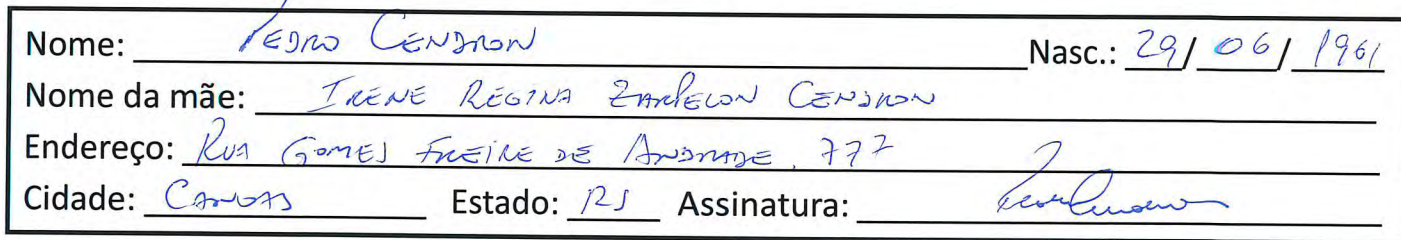 Nome: PEDRO CENDRON Nasc.: 29/ 06/ 1961
Nome da mãe: IRENE REGINA ZARPELON CENDRON
Endereço: RUA GOMES FREIRE DE ANDRADE, 777
Cidade: CANOAS Estado: RS Assinatura: